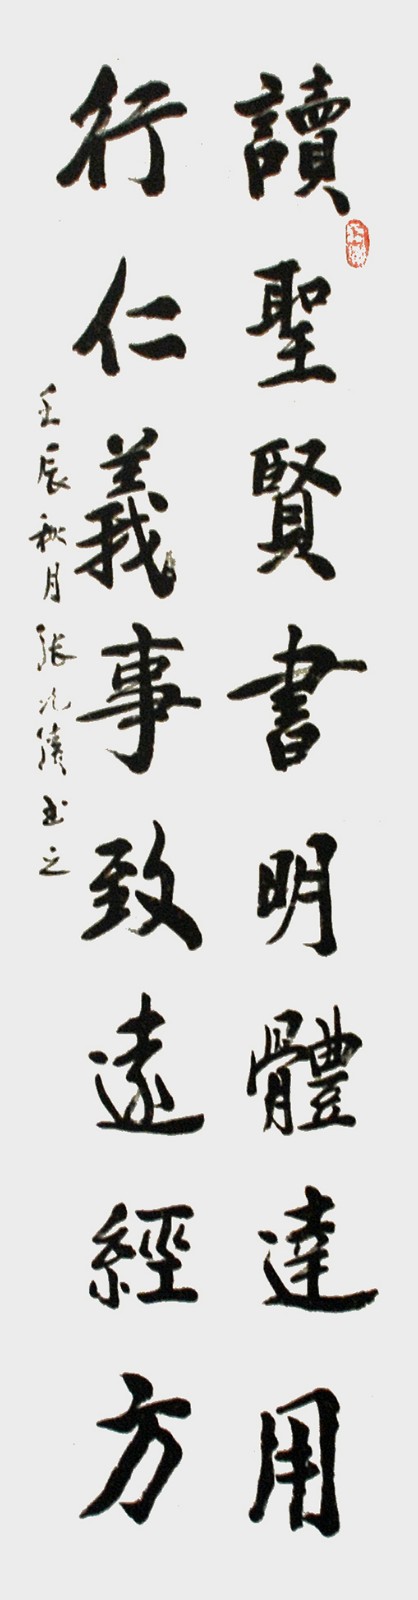 讀聖賢書明體達用
行仁義事致遠經方
壬辰秋月張九儒書之